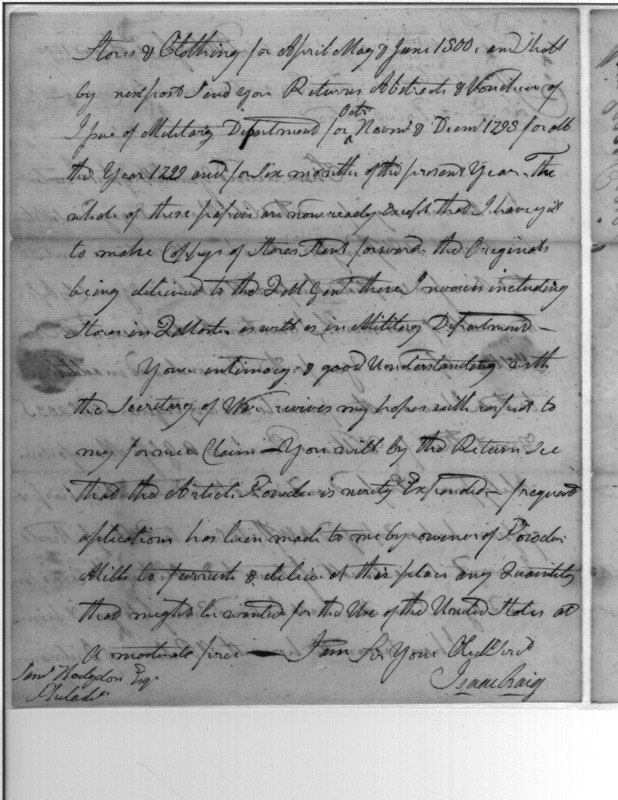 Stores & Clothing for April May & June 1800, and shall
by next post send you Returns Abstracts & Vouchers of
Issue of Military Department for Octr Novmr & Decmr 1798 for all
the Year 1799 and for Six months of the present Year. The
whole of these papers are now ready except that I have yet
to make Copys of Stores Sent forward. the Originals
being delivered to the Q M Genl these Invoices including
Stores in Q Mastr as well as in Military Department —
Your intimacy & good Understanding with
the Secretary of War revives my hopes with respect to
my former Claim — You will by the Return See
that the Article Powder is nearly Expended — frequent
aplications has been made to me by owners of Powder
Mills to furnish & deliver at this place any Quantity
that might be wanted for the Use of the United States at
a moderate price — I am Sir Your Obedt Servt
Isaac Craig
Saml Hodgdon Esqr
Philada